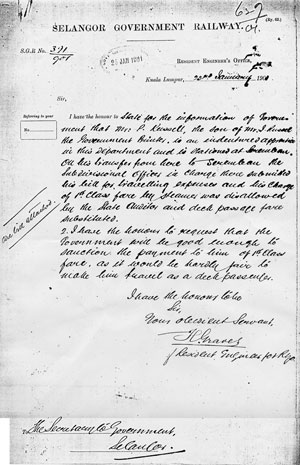 627/01.
SELANGOR GOVERNMENT RAILWAY.
(Ry. 62.)
S.G.R No. 371/901
23 JAN 1901
RESIDENT ENGINEER'S OFFICE,
Kuala Lumpur, 22nd January 1901
Sir,
Referring to your
No.
I have the honour to state for the information of Govern-
ment that Mr. P. Russell, the son of Mr. J. Russell
the Government Printer, is an indentured apprentice
in this department and is stationed at Seremban.
On his transfer from here to Seremban the
Subdivisional Officer in charge there submitted
his bill for travelling expenses and his charge
of 1st Class fare by steamer was disallowed
by the State Auditor and deck passage fare
substituted.
2. I have the honour to request that the
Government will be good enough to
sanction the payment to him of 1st Class
fare, as it would be hardly fair to
make him travel as a deck passenger.
I have the honour to be
Sir,
Your obedient Servant,
Graves
Resident Engineer
The Secretary to Government,
Selangor.